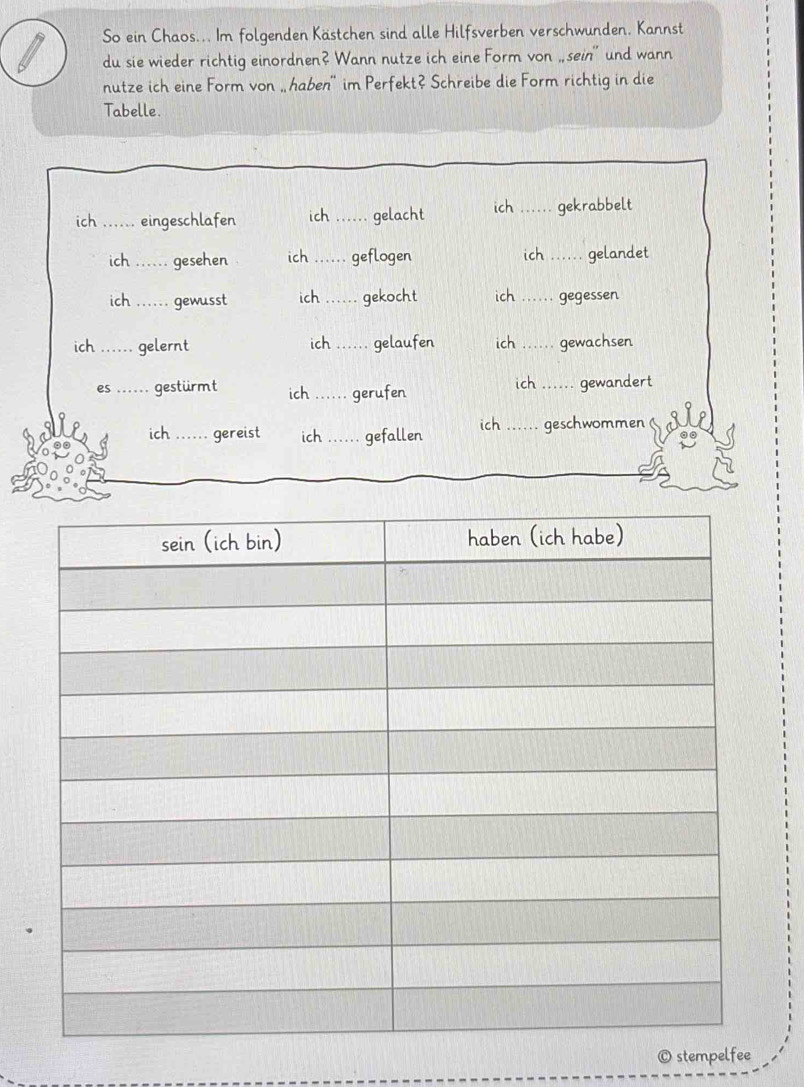 So ein Chaos... Im folgenden Kästchen sind alle Hilfsverben verschwunden. Kannst
du sie wieder richtig einordnen? Wann nutze ich eine Form von „sein“ und wann
nutze ich eine Form von „haben“ im Perfekt? Schreibe die Form richtig in die
Tabelle.
ich ...... eingeschlafen ich ...... gelacht ich ...... gekrabbelt
ich ...... gesehen ich ...... geflogen ich ...... gelandet
ich ...... gewusst ich ...... gekocht ich ...... gegessen
ich ...... gelernt ich ...... gelaufen ich ...... gewachsen
es ...... gestürmt ich ...... gerufen ich ...... gewandert
ich ...... gereist ich ...... gefallen ich ...... geschwommen
sein (ich bin) haben (ich habe)
© stempelfee